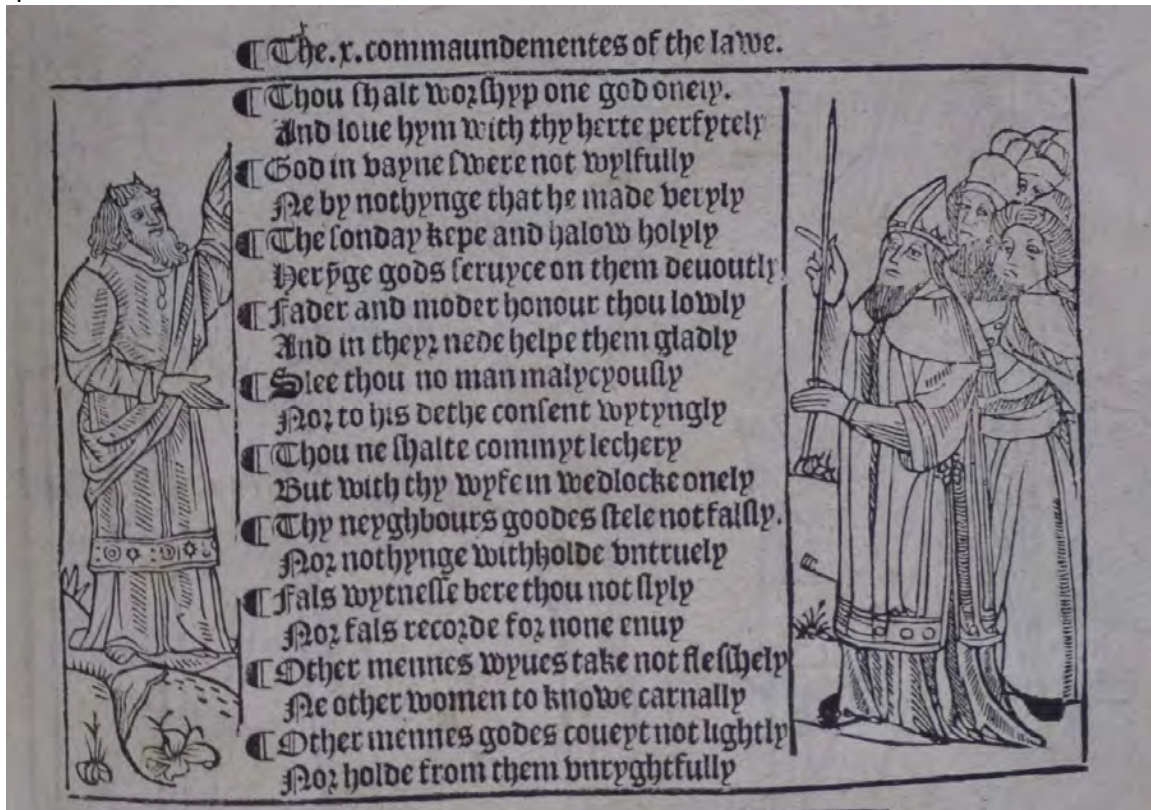 ¶The.x.commaundementes of the lawe.
¶Thou shalt worshyp one god onely.
And loue hym with thy herte perfytely
¶God in vayne swere not wylfully
Ne by nothynge that he made veryly
¶The sonday kepe and halow holyly
Herȳge gods seruyce on them deuoutly
¶Fader and moder honour thou lowly
And in theyr nede helpe them gladly
¶Slee thou no man malycyously
Nor to his dethe consent wytyngly
¶Thou ne shalte commyt lechery
But with thy wyfe in wedlocke onely
¶Thy neyghbours goodes stele not falsly.
Nor nothynge withholde vntruely
¶Fals wytnesse bere thou not slyly
Nor fals recorde for none enuy
¶Other mennes wyues take not fleshely
Ne other women to knowe carnally
¶Other mennes godes coueyt not lightly
Nor holde from them vnryghtfully